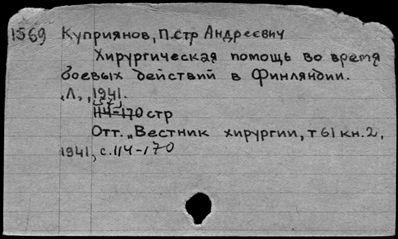 1569 Куприянов, П.стр Андреевич
Хирургическая помощь во время
боевых действий в Финляндии.
Л., 1941.
114-170 стр
Отт. „Вестник хирургии, т 61 кн. 2,
1941, с. 114-170